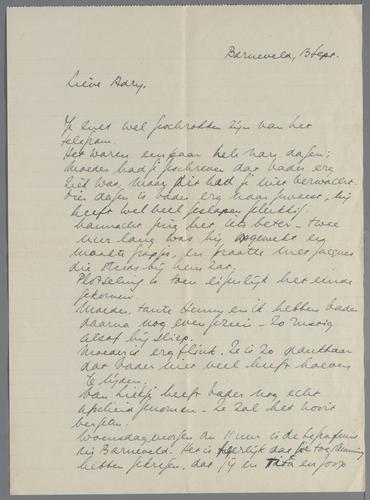 Barneveld, 13 Sept.
Lieve Adry,
Je zult wel geschrokken zijn van het
telegram.
Het waren een paar hele nare dagen;
Moeder had je geschreven dat vader erg
ziek was, maar dit had je niet verwacht.
Die dagen is vader erg naar geweest; hij
heeft wel veel geslapen gelukkig.
Vannacht ging het iets beter - twee
uur lang was hij opgewekt en
maakte grapjes, en praatte met Jacques
die steeds bij hem zat.
Plotseling is toen eigenlijk het einde
gekomen.
Moeder, tante Henny en ik hebben vader
daarna nog even gezien - zo rustig
alsof hij sliep.
Moeder is erg flink. Ze is zo dankbaar
dat vader niet veel heeft hoeven
te lijden.
Van heeft vader nog echt
afscheid genomen - ze zal het nooit
vergeten.
Woensdagmorgen om 11 uur is de begrafenis
bij Barneveld. Het is heerlijk dat je toestemming
hebben gekregen, dat jij en en Joop